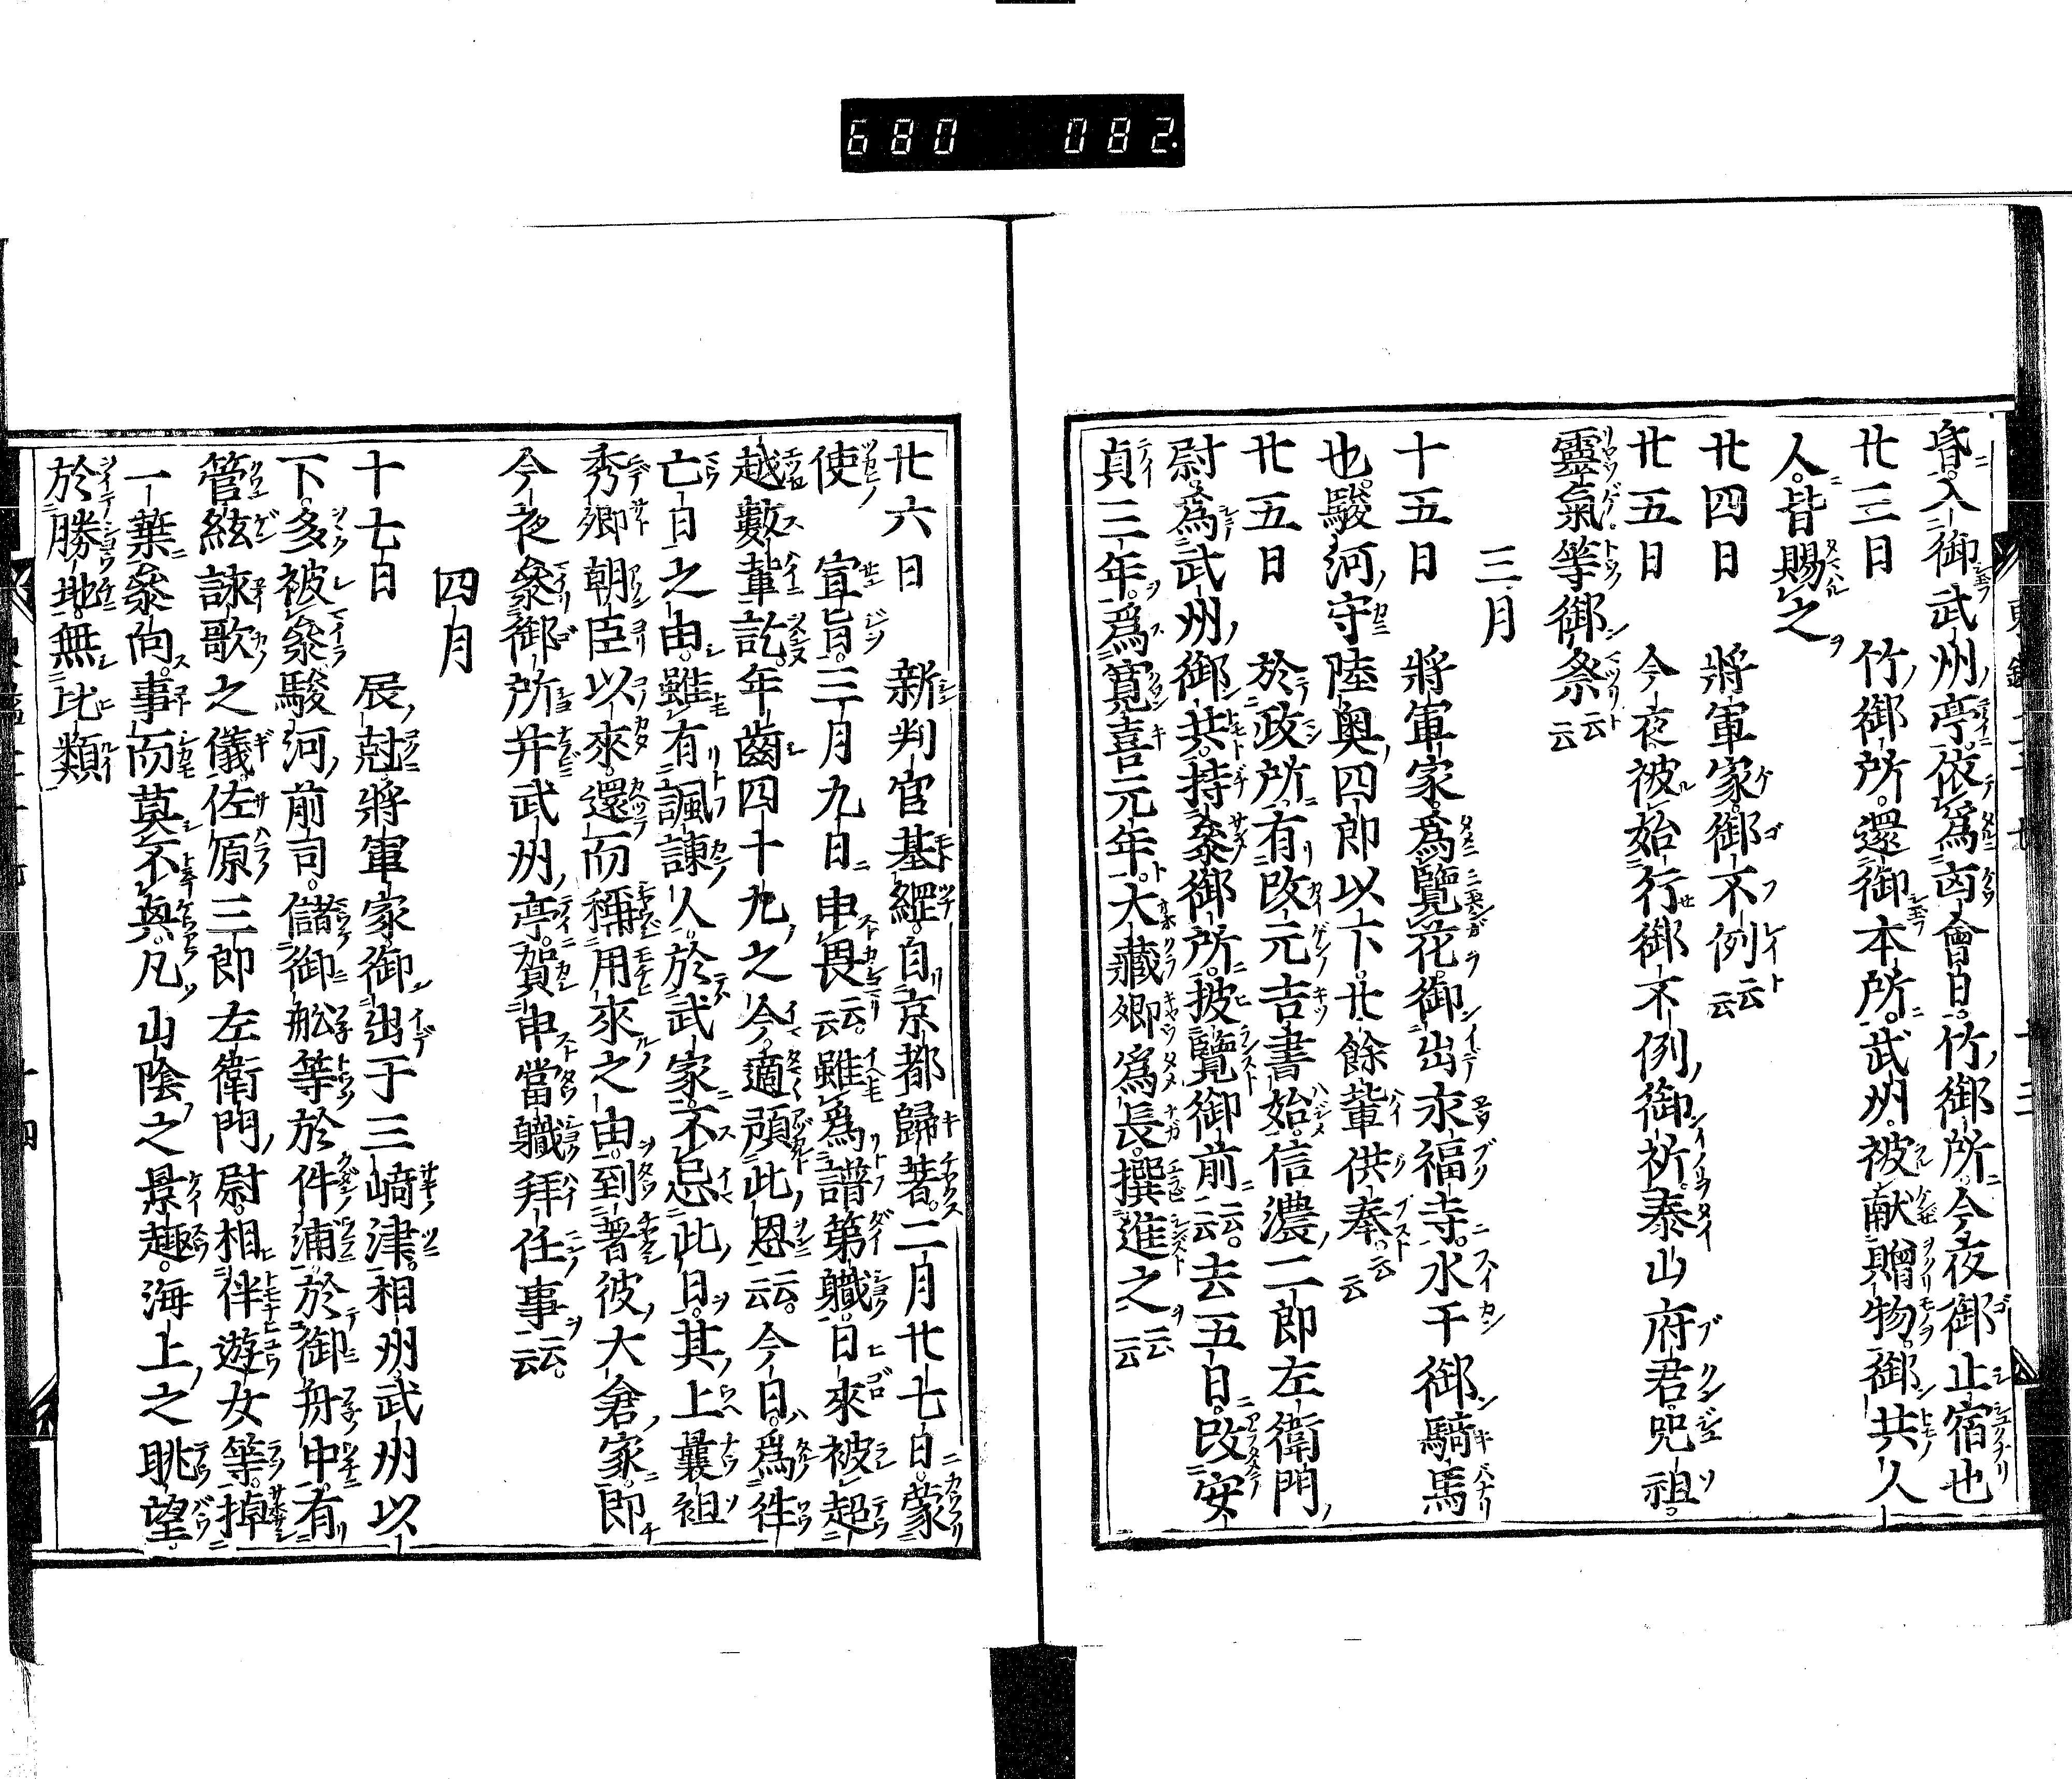 680 082.
昏入御武州亭依為凶會日竹御所今夜御止宿也
廿三日 竹御所還御本所武州被献贈物御共人
人皆賜之
廿四日 將軍家御不例云云
廿五日 今夜被始行御不例御祈泰山府君咒祖
靈氣等御祭云云
三月
十五日 將軍家為覽花御出永福寺水干御騎馬
也駿河守陸奥四郎以下廿餘輩供奉云云
廿五日 於政所有改元吉書始信濃二郎左衛門
尉為武州御共持參御所披覽御前云云去五日改安
貞三年為寬喜元年大藏卿為長撰進之云云
廿六日 新判官基綱自京都歸著二月廿七日蒙
使 宣旨三月九日申畏云云雖為譜第職日來被超
越數輩訖年齒四十九之今適預此恩云云今日為徃
亡日之由雖有諷諌人於武家不忌此日其上曩祖
秀郷朝臣以來還而稱用來之由到著彼大倉家即
今夜參御所并武州亭賀申當職拜任事云云
四月
十七日 辰尅將軍家御出于三﨑津相州武州以
下多被參駿河前司儲御舩等於件浦於御舟中有
管絃詠歌之儀佐原三郎左衛門尉相伴遊女等掉
一葉參向事而莫不興凡山陰之景趣海上之眺望
於勝地無比類